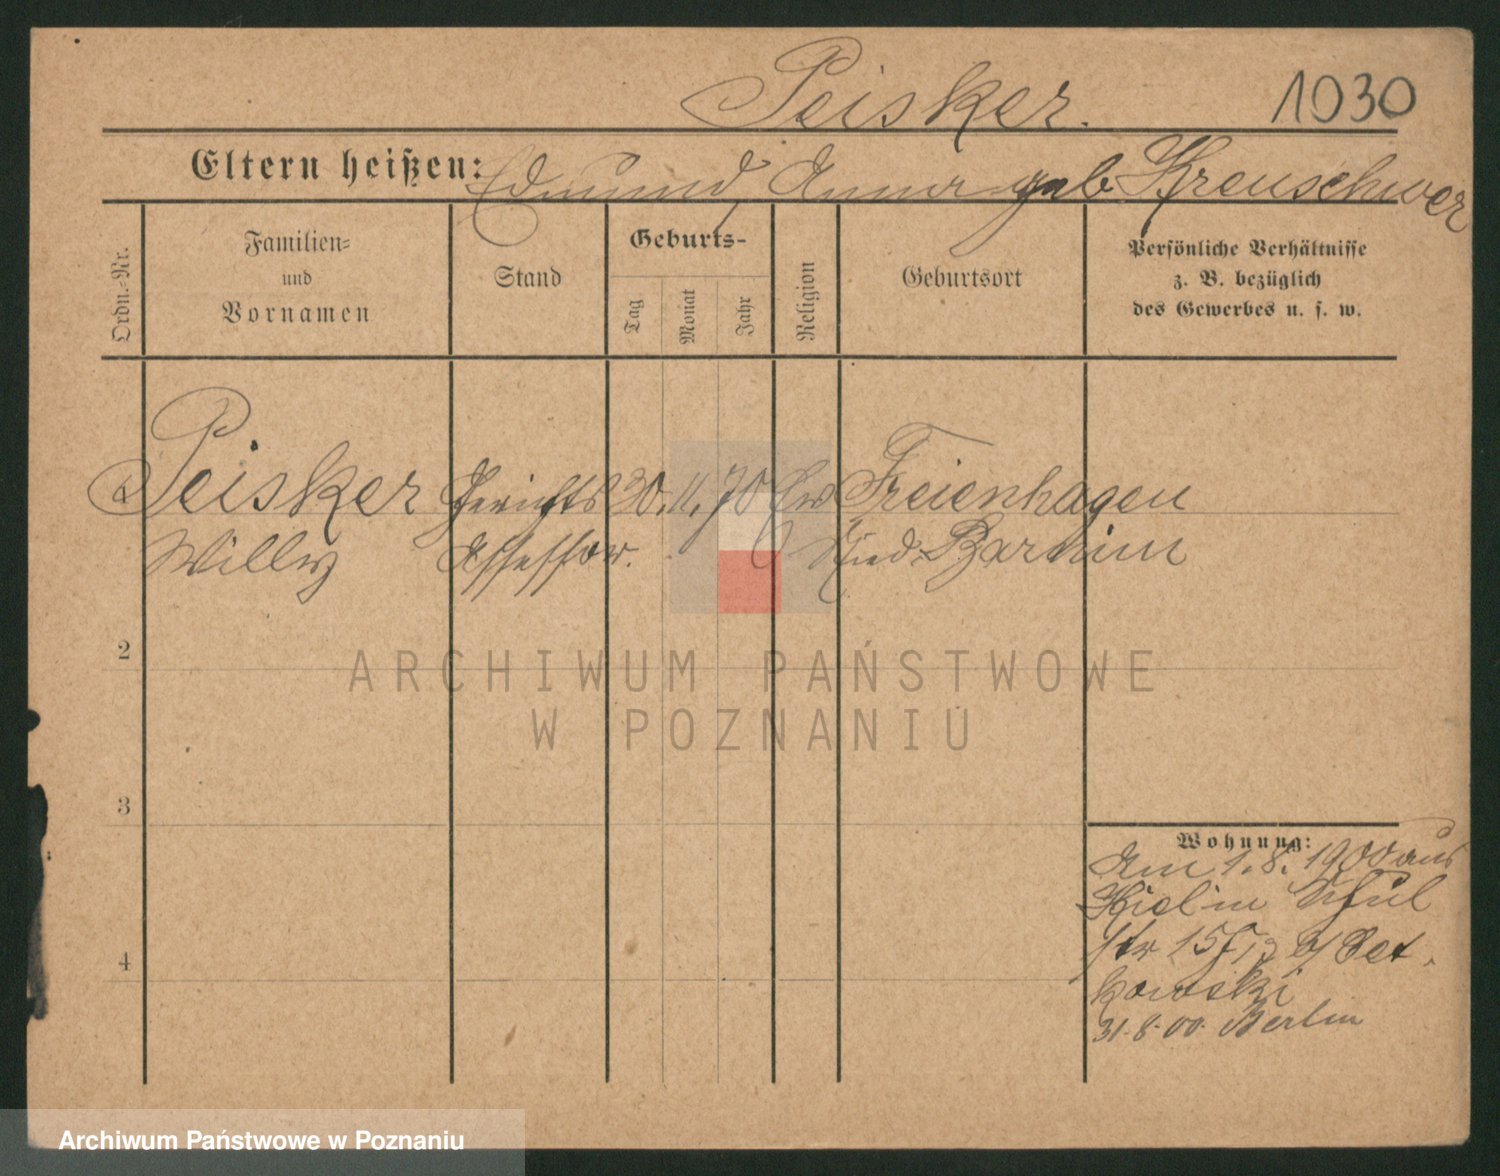 Peisker.
1030
Eltern heißen: Edmund, Anna geb Kreuschwer
Ordn.-Nr.
Familien=
und
Vornamen
Stand
Geburts-
Tag
Monat
Jahr
Religion
Geburtsort
Persönliche Verhältnisse
z. B. bezüglich
des Gewerbes u. s. w.
Peisker Gerichts 30. 11. 70 Ev Freienhagen
Willy Assessor. Nied. Barnim
2
3
4
Wohnung:
Am 1. 8. 1900 aus
Kiel in Schul
str 15 b/ Set
kowski
31.8.00. Berlin
ARCHIWUM PAŃSTWOWE
W POZNANIU
Archiwum Państwowe w Poznaniu